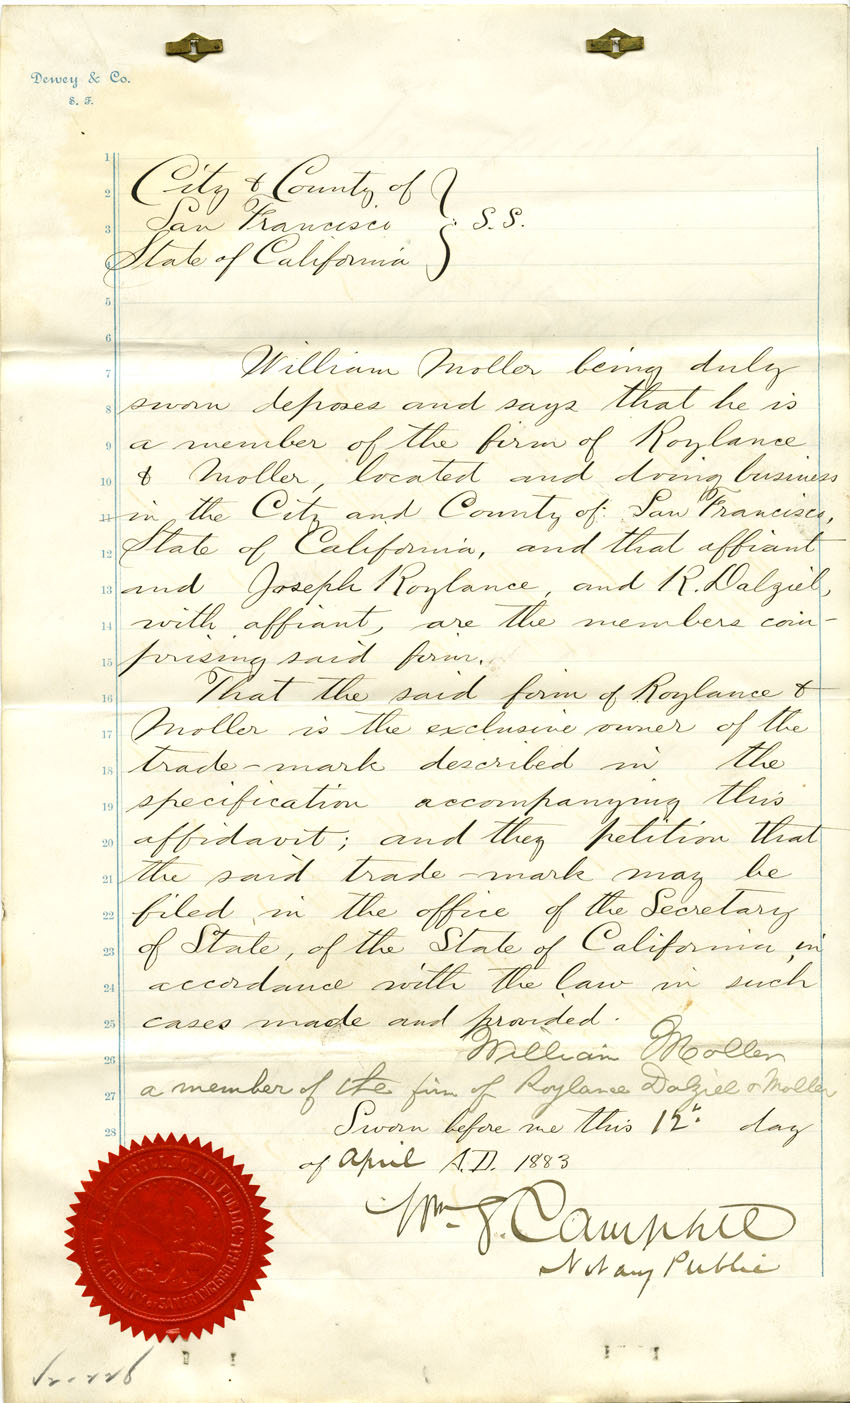 Dewey & Co.
S. F.
1
2
3
4
5
6
7
8
9
10
11
12
13
14
15
16
17
18
19
20
21
22
23
24
25
26
27
28
City & County of
San Francisco } S.S.
State of California
William Moller being duly
sworn deposes and says that he is
a member of the firm of Roylance
& Moller, located and doing business
in the City and County of San Francisco,
State of California, and that affiant
and Joseph Roylance, and R. Dalziel,
with affiant, are the members com-
prising said firm.
That the said firm of Roylance &
Moller is the exclusive owner of the
trade-mark described in the
specification accompanying this
affidavit; and they petition that
the said trade-mark may be
filed in the office of the Secretary
of State, of the State of California, in
accordance with the law in such
cases made and provided.
William Moller
a member of the firm of Roylance Dalziel & Moller
Sworn before me this 12th day
of April A.D. 1883
Wm. Campbell
Notary Public